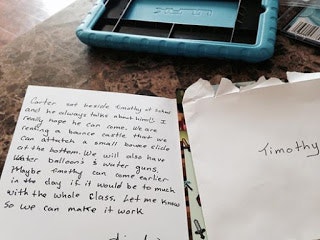 Carter sat beside timothy at school
and he always talks about him!! I
really hope he can come. We are
renting a bounce castle that we
can attatch a small bounce slide
at the bottom. We will also have
Water balloon's & water guns.
Maybe timothy can come earlier
in the day if it would be to much
with the whole class. Let me know
so we can make it work
Timothy